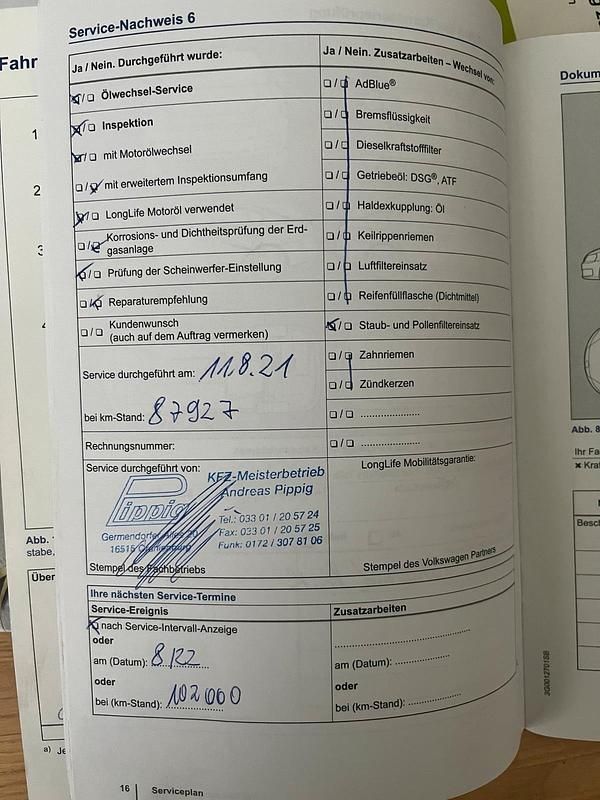 Service-Nachweis 6
Ja / Nein. Durchgeführt wurde:
Ja / Nein. Zusatzarbeiten – Wechsel von:
Ölwechsel-Service
Inspektion
mit Motorölwechsel
mit erweitertem Inspektionsumfang
LongLife Motoröl verwendet
Korrosions- und Dichtheitsprüfung der Erd-
gasanlage
Prüfung der Scheinwerfer-Einstellung
Reparaturempfehlung
Kundenwunsch
(auch auf dem Auftrag vermerken)
AdBlue®
Bremsflüssigkeit
Dieselkraftstofffilter
Getriebeöl: DSG®, ATF
Haldexkupplung: Öl
Keilrippenriemen
Luftfiltereinsatz
Reifenfüllflasche (Dichtmittel)
Staub- und Pollenfiltereinsatz
Zahnriemen
Zündkerzen
Service durchgeführt am: 11.8.21
bei km-Stand: 87927
Rechnungsnummer:
Service durchgeführt von:
LongLife Mobilitätsgarantie:
Pippig
KFZ-Meisterbetrieb
Andreas Pippig
Germendorfer Allee 20
16515 Oranienburg
Tel.: 033 01 / 20 57 24
Fax: 033 01 / 20 57 25
Funk: 0172 / 307 81 06
Stempel des Fachbetriebs
Stempel des Volkswagen Partners
Ihre nächsten Service-Termine
Service-Ereignis
Zusatzarbeiten
nach Service-Intervall-Anzeige
oder
am (Datum): 8/22
oder
bei (km-Stand): 102000
am (Datum):
oder
bei (km-Stand):
16 Serviceplan
Fahr
1
2
3
4
Abb.
stabe,
Über
a) Je
Dokum
Abb. 8
Ihr Fa
✖ Kraf
Besch
3G0012701SB